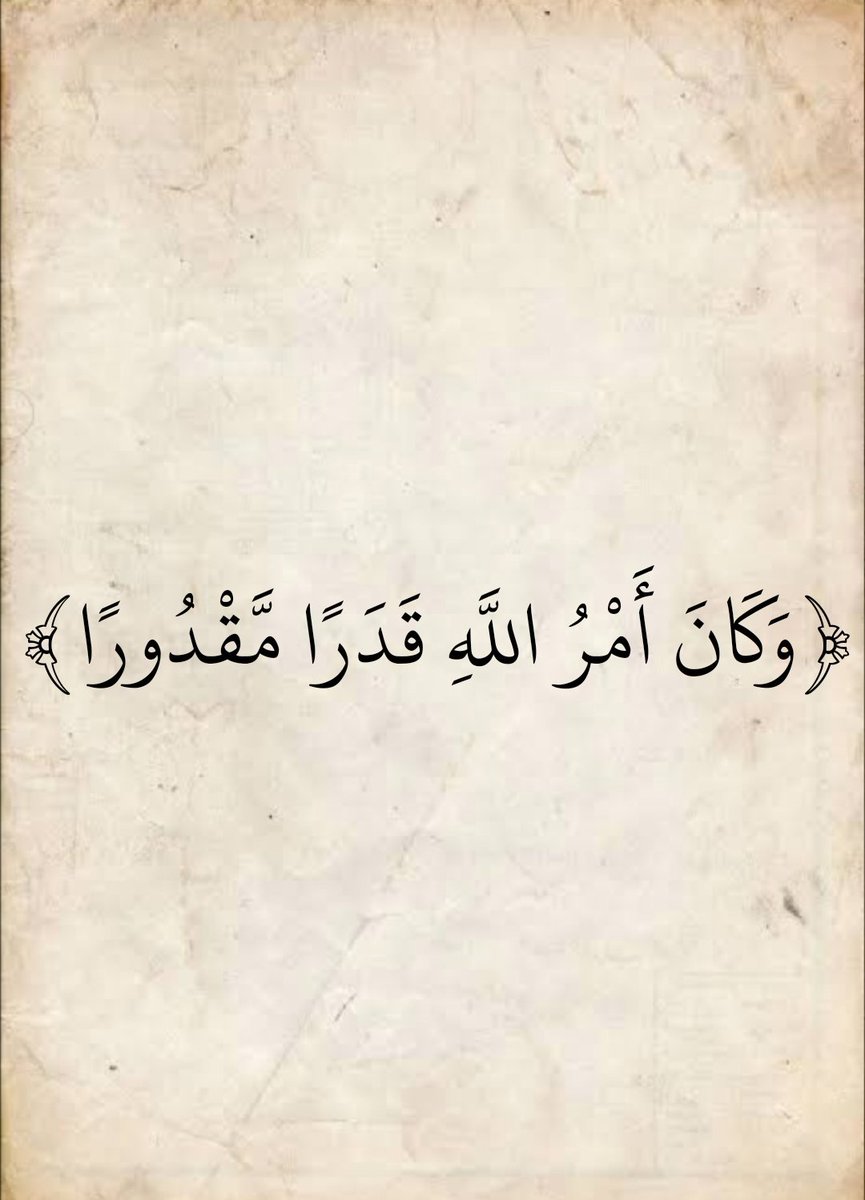 ﴿وَكَانَ أَمْرُ اللَّهِ قَدَرًا مَّقْدُورًا﴾